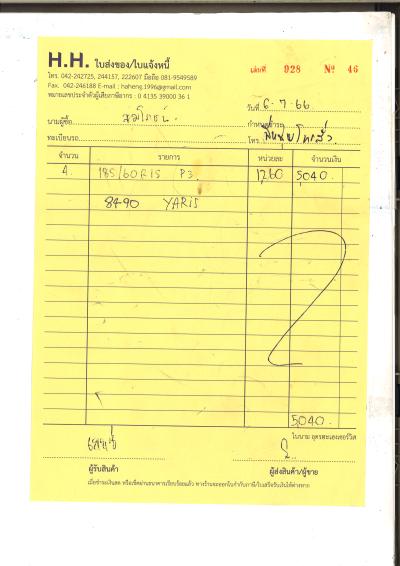 H.H. ใบส่งของ/ใบแจ้งหนี้
โทร. 042-242725, 244157, 222607 มือถือ 081-9549589
Fax. 042-246188 E-mail : haheng.1996@gmail.com
หมายเลขประจำตัวผู้เสียภาษีอากร : 0 4135 39000 36 1
เล่มที่ 928 Nº 46
วันที่ 6-7-66
นามผู้ซื้อ
กำหนดชำระ
ทะเบียนรถ
โทร.
จำนวน รายการ หน่วยละ จำนวนเงิน
4. 185/60R15 P3. 1260 5,040.
8490 YARIS
5,040.
ในนาม อุดรฮะเฮงเซอร์วิส
ผู้รับสินค้า ผู้ส่งสินค้า/ผู้ขาย
เมื่อชำระเงินสด หรือเช็คผ่านธนาคารเรียบร้อยแล้ว ทางร้านจะออกใบกำกับภาษี/ใบเสร็จรับเงินให้ต่างหาก